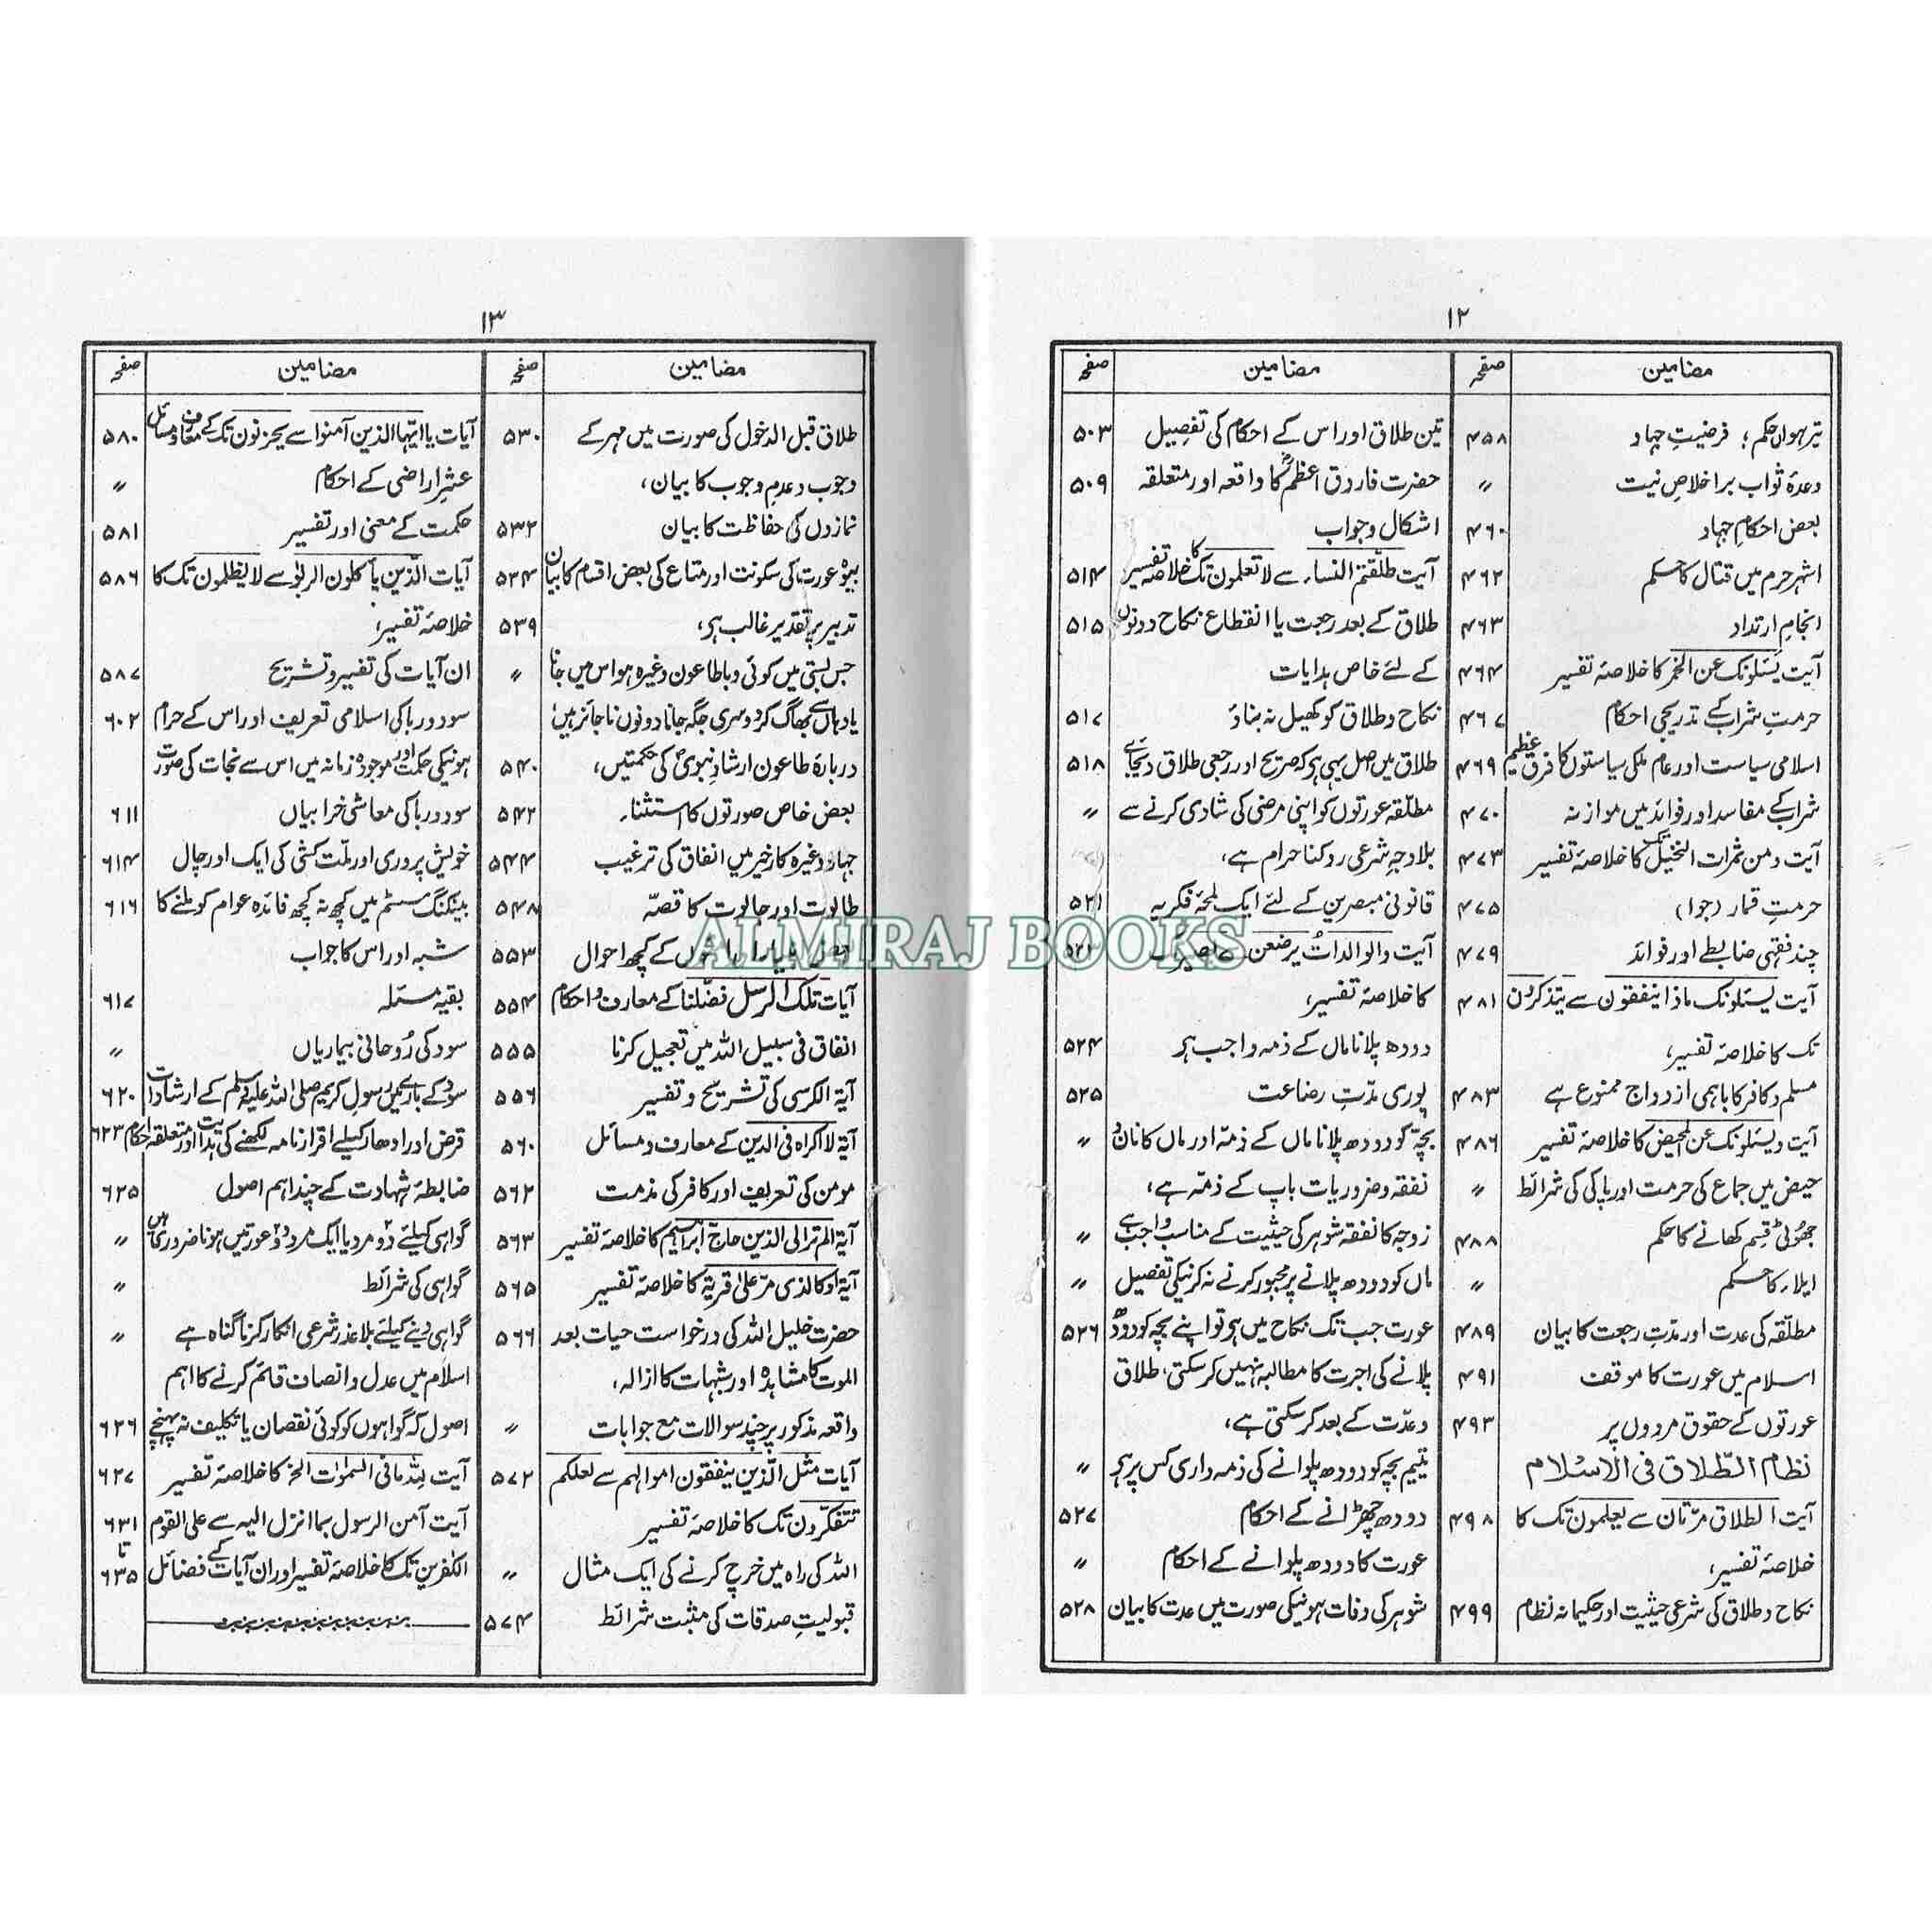 ۱۲
مضامین صفحہ
تیرہواں حکم؛ فرضیتِ جہاد ۴۵۸
وعدۂ ثواب بر اخلاصِ نیت 〃
بعض احکامِ جہاد ۴۶۰
اشہر حرم میں قتال کا حکم ۴۶۲
انجامِ ارتداد ۴۶۳
آیت یَسْـَٔلونک عن الخمر کا خلاصۂ تفسیر ۴۶۴
حرمتِ شراب کے تدریجی احکام ۴۶۷
اسلامی سیاست اور عام ملکی سیاستوں کا فرقِ عظیم ۴۶۹
شراب کے مفاسد اور فوائد میں موازنہ ۴۷۰
آیت ومن ثمرات النخیل تک کا خلاصۂ تفسیر ۴۷۳
حرمتِ قمار (جوا) ۴۷۵
چند فقہی ضابطے اور فوائد ۴۷۹
آیت یسئلونک ماذا ینفقون سے یتذکرون ۴۸۱
تک کا خلاصۂ تفسیر،
مسلم و کافر کا باہمی ازدواج ممنوع ہے ۴۸۳
آیت ویسئلونک عن المحیض کا خلاصۂ تفسیر ۴۸۶
حیض میں جماع کی حرمت اور پاکی کی شرائط 〃
جھوٹی قسم کھانے کا حکم ۴۸۸
ایلاء کا حکم 〃
مطلّقہ کی عدت اور مدّتِ رجعت کا بیان ۴۸۹
اسلام میں عورت کا موقف ۴۹۱
عورتوں کے حقوق مردوں پر ۴۹۳
نظام الطّلاق فی الاسلام
آیت الطلاق مرّتان سے یعلمون تک کا ۴۹۸
خلاصۂ تفسیر،
نکاح و طلاق کی شرعی حیثیت اور حکیمانہ نظام ۴۹۹
مضامین صفحہ
تین طلاق اور اس کے احکام کی تفصیل ۵۰۳
حضرت فاروق اعظمؓ کا واقعہ اور متعلقہ ۵۰۹
اشکال و جواب
آیت طلّقتم النساء سے لا تعلمون تک کا خلاصۂ تفسیر ۵۱۴
طلاق کے بعد رجعت یا انقطاع نکاح دونوں ۵۱۵
کے لئے خاص ہدایات
نکاح و طلاق کو کھیل نہ بناؤ ۵۱۷
طلاق میں اصل یہی ہو کہ صریح اور رجعی طلاق دیجائے ۵۱۸
مطلّقہ عورتوں کو اپنی مرضی کی شادی کرنے سے 〃
بلا وجہِ شرعی روکنا حرام ہے،
قانونی مبصرین کے لئے ایک لمحۂ فکریہ ۵۲۱
آیت والوالداتُ یرضعن سے بصیر تک ۵۲۳
کا خلاصۂ تفسیر،
دودھ پلانا ماں کے ذمہ واجب ہو ۵۲۴
پوری مدّتِ رضاعت ۵۲۵
بچّہ کو دودھ پلانا ماں کے ذمّہ اور ماں کا نان و 〃
نفقہ و ضروریات باپ کے ذمّہ ہے،
زوجہ کا نفقہ شوہر کی حیثیت کے مناسب واجب ہے 〃
ماں کو دودھ پلانے پر مجبور کرنے نہ کرنیکی تفصیل 〃
عورت جب تک نکاح میں ہو تو اپنے بچہ کو دودھ ۵۲۶
پلانے کی اجرت کا مطالبہ نہیں کر سکتی، طلاق
و عدّت کے بعد کر سکتی ہے،
یتیم بچہ کو دودھ پلوانے کی ذمہ داری کس پر ہو 〃
دودھ چھڑانے کے احکام ۵۲۷
عورت کا دودھ پلوانے کے احکام 〃
شوہر کی وفات ہونیکی صورت میں عدت کا بیان ۵۲۸
۱۳
مضامین صفحہ
طلاق قبل الدخول کی صورت میں مہر کے ۵۳۰
وجوب و عدمِ وجوب کا بیان،
نمازوں کی حفاظت کا بیان ۵۳۲
بیوہ عورت کی سکونت اور متاع کی بعض اقسام کا بیان ۵۳۴
تدبیر پر تقدیر غالب ہو، ۵۳۹
جس بستی میں کوئی وبا طاعون وغیرہ ہو اس میں جانا 〃
یا وہاں سے بھاگ کر دوسری جگہ جانا دونوں ناجائز ہیں،
دربارۂ طاعون ارشادِ نبویؐ کی حکمتیں، ۵۴۰
بعض خاص صورتوں کا استثناء ۵۴۲
جہاد وغیرہ کارِ خیر میں انفاق کی ترغیب ۵۴۴
طالوت اور جالوت کا قصّہ ۵۴۸
بعض کے کچھ احوال ۵۵۳
آیات تلک الرسل فضّلنا کے معارف و احکام ۵۵۴
انفاق فی سبیل اللہ میں تعجیل کرنا ۵۵۵
آیۃ الکرسی کی تشریح و تفسیر ۵۵۶
آیۃ لا اکراہ فی الدین کے معارف و مسائل ۵۶۰
مومن کی تعریف اور کافر کی مذمت ۵۶۲
آیۃ الم تر الی الذین حاج ابراہیم کا خلاصۂ تفسیر ۵۶۳
آیۃ او کالذی مرّ علیٰ قریۃ کا خلاصۂ تفسیر ۵۶۵
حضرت خلیل اللہ کی درخواست حیات بعد ۵۶۶
الموت کا مشاہدہ اور شبہات کا ازالہ،
واقعہ مذکور پر چند سوالات مع جوابات 〃
آیات مثل الّذین ینفقون اموالہم سے لعلکم ۵۷۲
تتفکّرون تک کا خلاصۂ تفسیر
اللہ کی راہ میں خرچ کرنے کی ایک مثال 〃
قبولیتِ صدقات کی مثبت شرائط ۵۷۴
مضامین صفحہ
آیات یا ایّہا الذین آمنوا سے یحزنون تک کے معارف و مسائل ۵۸۰
عشرِ اراضی کے احکام 〃
حکمت کے معنی اور تفسیر ۵۸۱
آیات الّذین یأکلون الربوٰ سے لا یظلمون تک کا ۵۸۶
خلاصۂ تفسیر،
ان آیات کی تفسیر و تشریح ۵۸۷
سود و ربا کی اسلامی تعریف اور اس کے حرام ۶۰۲
ہونیکی حکمت اور موجودہ زمانہ میں اس سے نجات کی صورت
سود و ربا کی معاشی خرابیاں ۶۱۱
خویش پروری اور ملّت کشی کی ایک اور چال ۶۱۴
بینکنگ سسٹم میں کچھ نہ کچھ فائدہ عوام کو ملنے کا ۶۱۶
شبہ اور اس کا جواب
بقیہ مسئلہ ۶۱۷
سود کی رُوحانی بیماریاں 〃
سود کے بارے میں رسول کریم صلی اللہ علیہ وسلم کے ارشادات ۶۲۰
قرض اور ادھار کیلئے اقرار نامہ لکھنے کی ہدایت اور متعلقہ احکام ۶۲۳
ضابطۂ شہادت کے چند اہم اصول ۶۲۵
گواہی کیلئے دو مرد یا ایک مرد دو عورتیں ہونا ضروری ہیں 〃
گواہی کی شرائط 〃
گواہی دینے کیلئے بلا عذرِ شرعی انکار کرنا گناہ ہے 〃
اسلام میں عدل و انصاف قائم کرنے کا اہم
اصول کہ گواہوں کو کوئی نقصان یا تکلیف نہ پہنچے ۶۲۶
آیت للہ مافی السمٰوات الخ کا خلاصۂ تفسیر ۶۲۷
آیت آمن الرسول بما انزل الیہ سے علی القوم ۶۳۱
تا
الکٰفرین تک کا خلاصۂ تفسیر اور ان آیات کے فضائل ۶۳۵
ALMIRAJ BOOKS